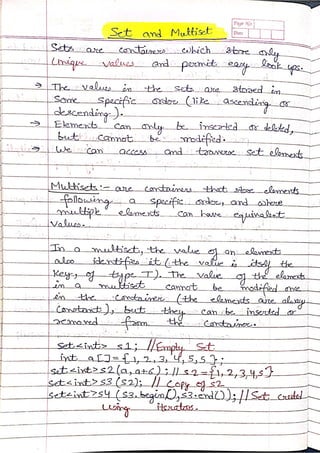 Page No.
Date
Set and Multiset
Sets are containers which store only
Unique values and permit easy look ups.
→ The values in the sets are stored in
some specific order (like ascending or
descending).
→ Elements can only be inserted or deleted,
but cannot be modified.
→ We can access and traverse set elements
Multisets:- are containers that store elements
following a specific order, and where
multiple elements can have equivalent
values.
In a multiset, the value of an element
also identifies it (the value is itself the
Key, of type T). The value of the elements
in a multiset cannot be modified once
in the container (the elements are always
constant), but they can be inserted or
removed from the container.
set<int> s1; //Empty Set
int a[]={1, 2, 3, 4, 5, 5};
set<int> s2(a, a+6); // s2={1, 2, 3, 4, 5}
set<int> s3 (s2); // Copy of s2
set<int> s4 (s3.begin(), s3.end()); // Set created
using iterators.